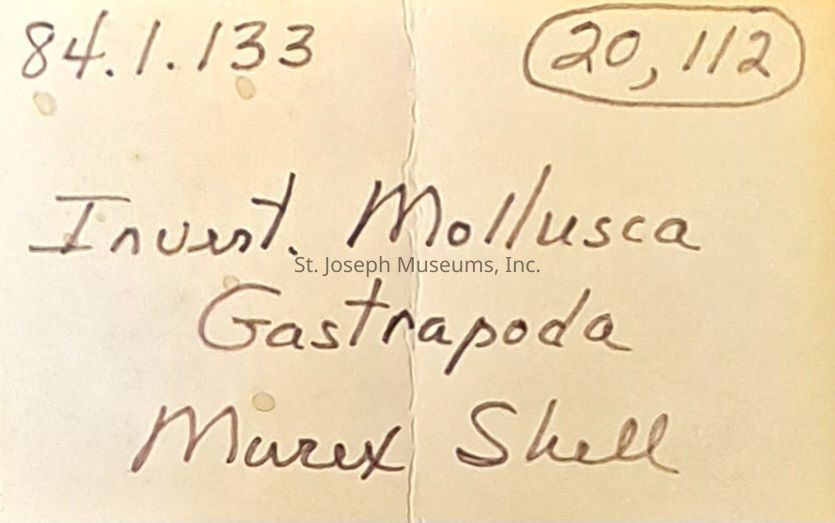 84.1.133 20,112
Invert. Mollusca
St. Joseph Museums, Inc.
Gastrapoda
Murex Shell